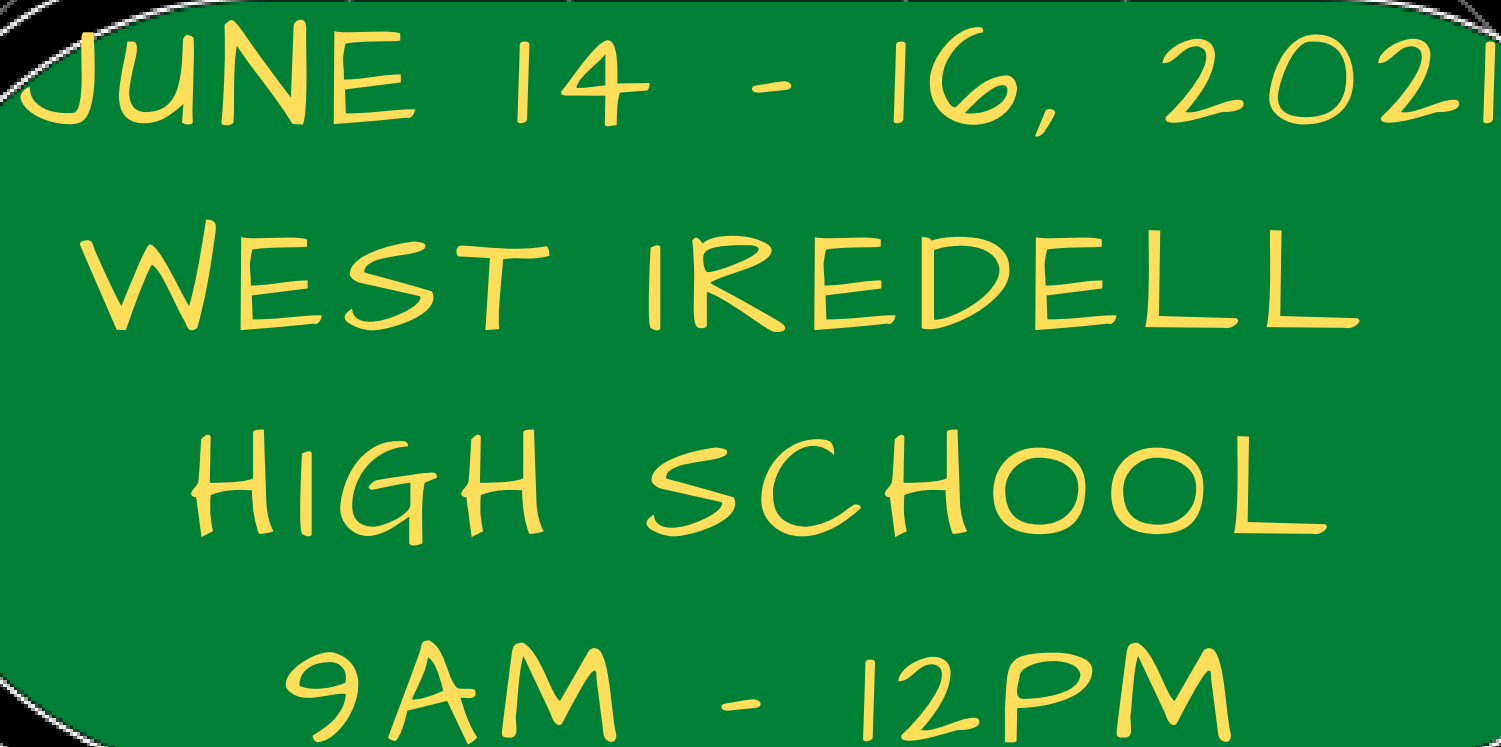 JUNE 14 - 16, 2021
WEST IREDELL
HIGH SCHOOL
9AM - 12PM